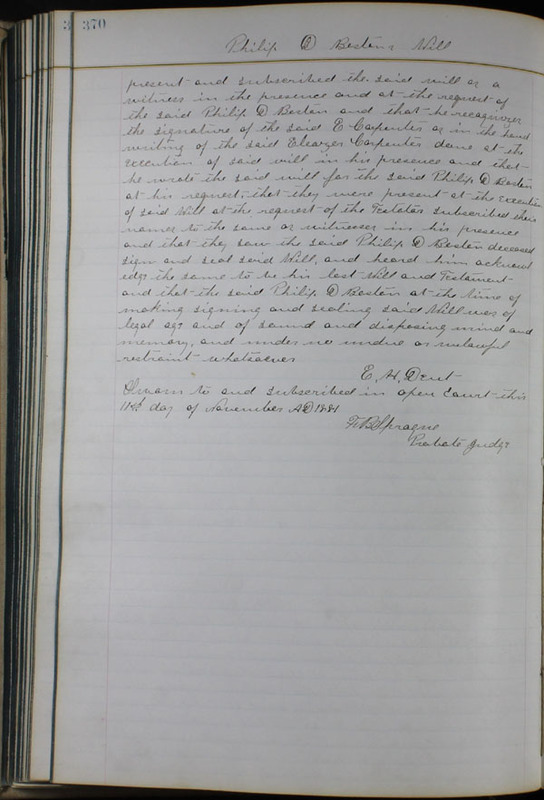 3 370
Philip D Boston Will
present and subscribed the said will as a
witness in the presence and at the request of
the said Philip D Boston and that he recognizes
the signature of the said E Carpenter as in the hand
writing of the said Eleazer Carpenter done at the
execution of said will in his presence and that
he wrote the said will for the said Philip D Boston
at his request; that they were present at the execution
of said Will at the request of the Testator subscribed their
names to the same as witnesses in his presence
and that they saw the said Philip D Boston deceased
sign and seal said Will, and heard him acknowl
edge the same to be his last Will and Testament
and that the said Philip D Boston at the time of
making signing and sealing said Will was of
legal age and of sound and disposing mind and
memory, and under no undue or unlawful
restraint whatsoever
E. H. Dent
Sworn to and subscribed in open Court this
11th day of November AD 1881
F. B. Sprague
Probate Judge